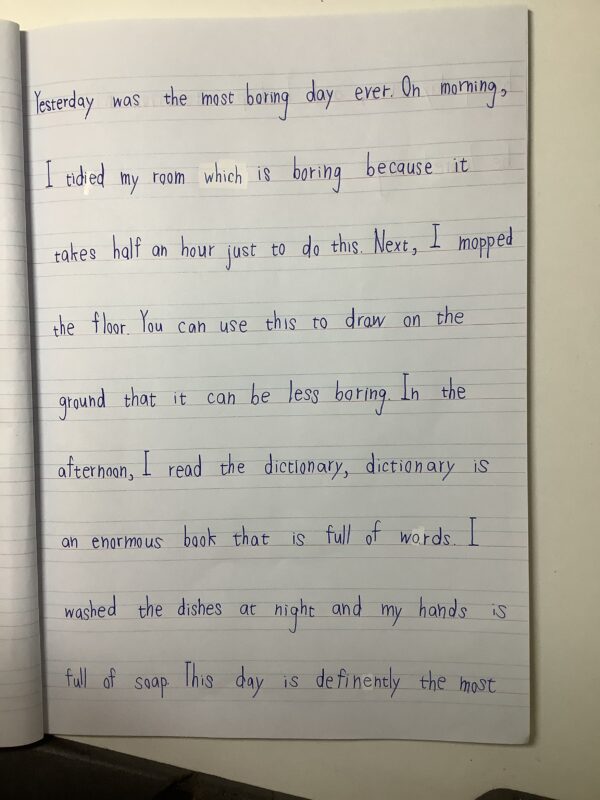 Yesterday was the most boring day ever. On morning,
I tidied my room which is boring because it
takes half an hour just to do this. Next, I mopped
the floor. You can use this to draw on the
ground that it can be less boring. In the
afternoon, I read the dictionary, dictionary is
an enormous book that is full of words. I
washed the dishes at night and my hands is
full of soap. This day is definently the most